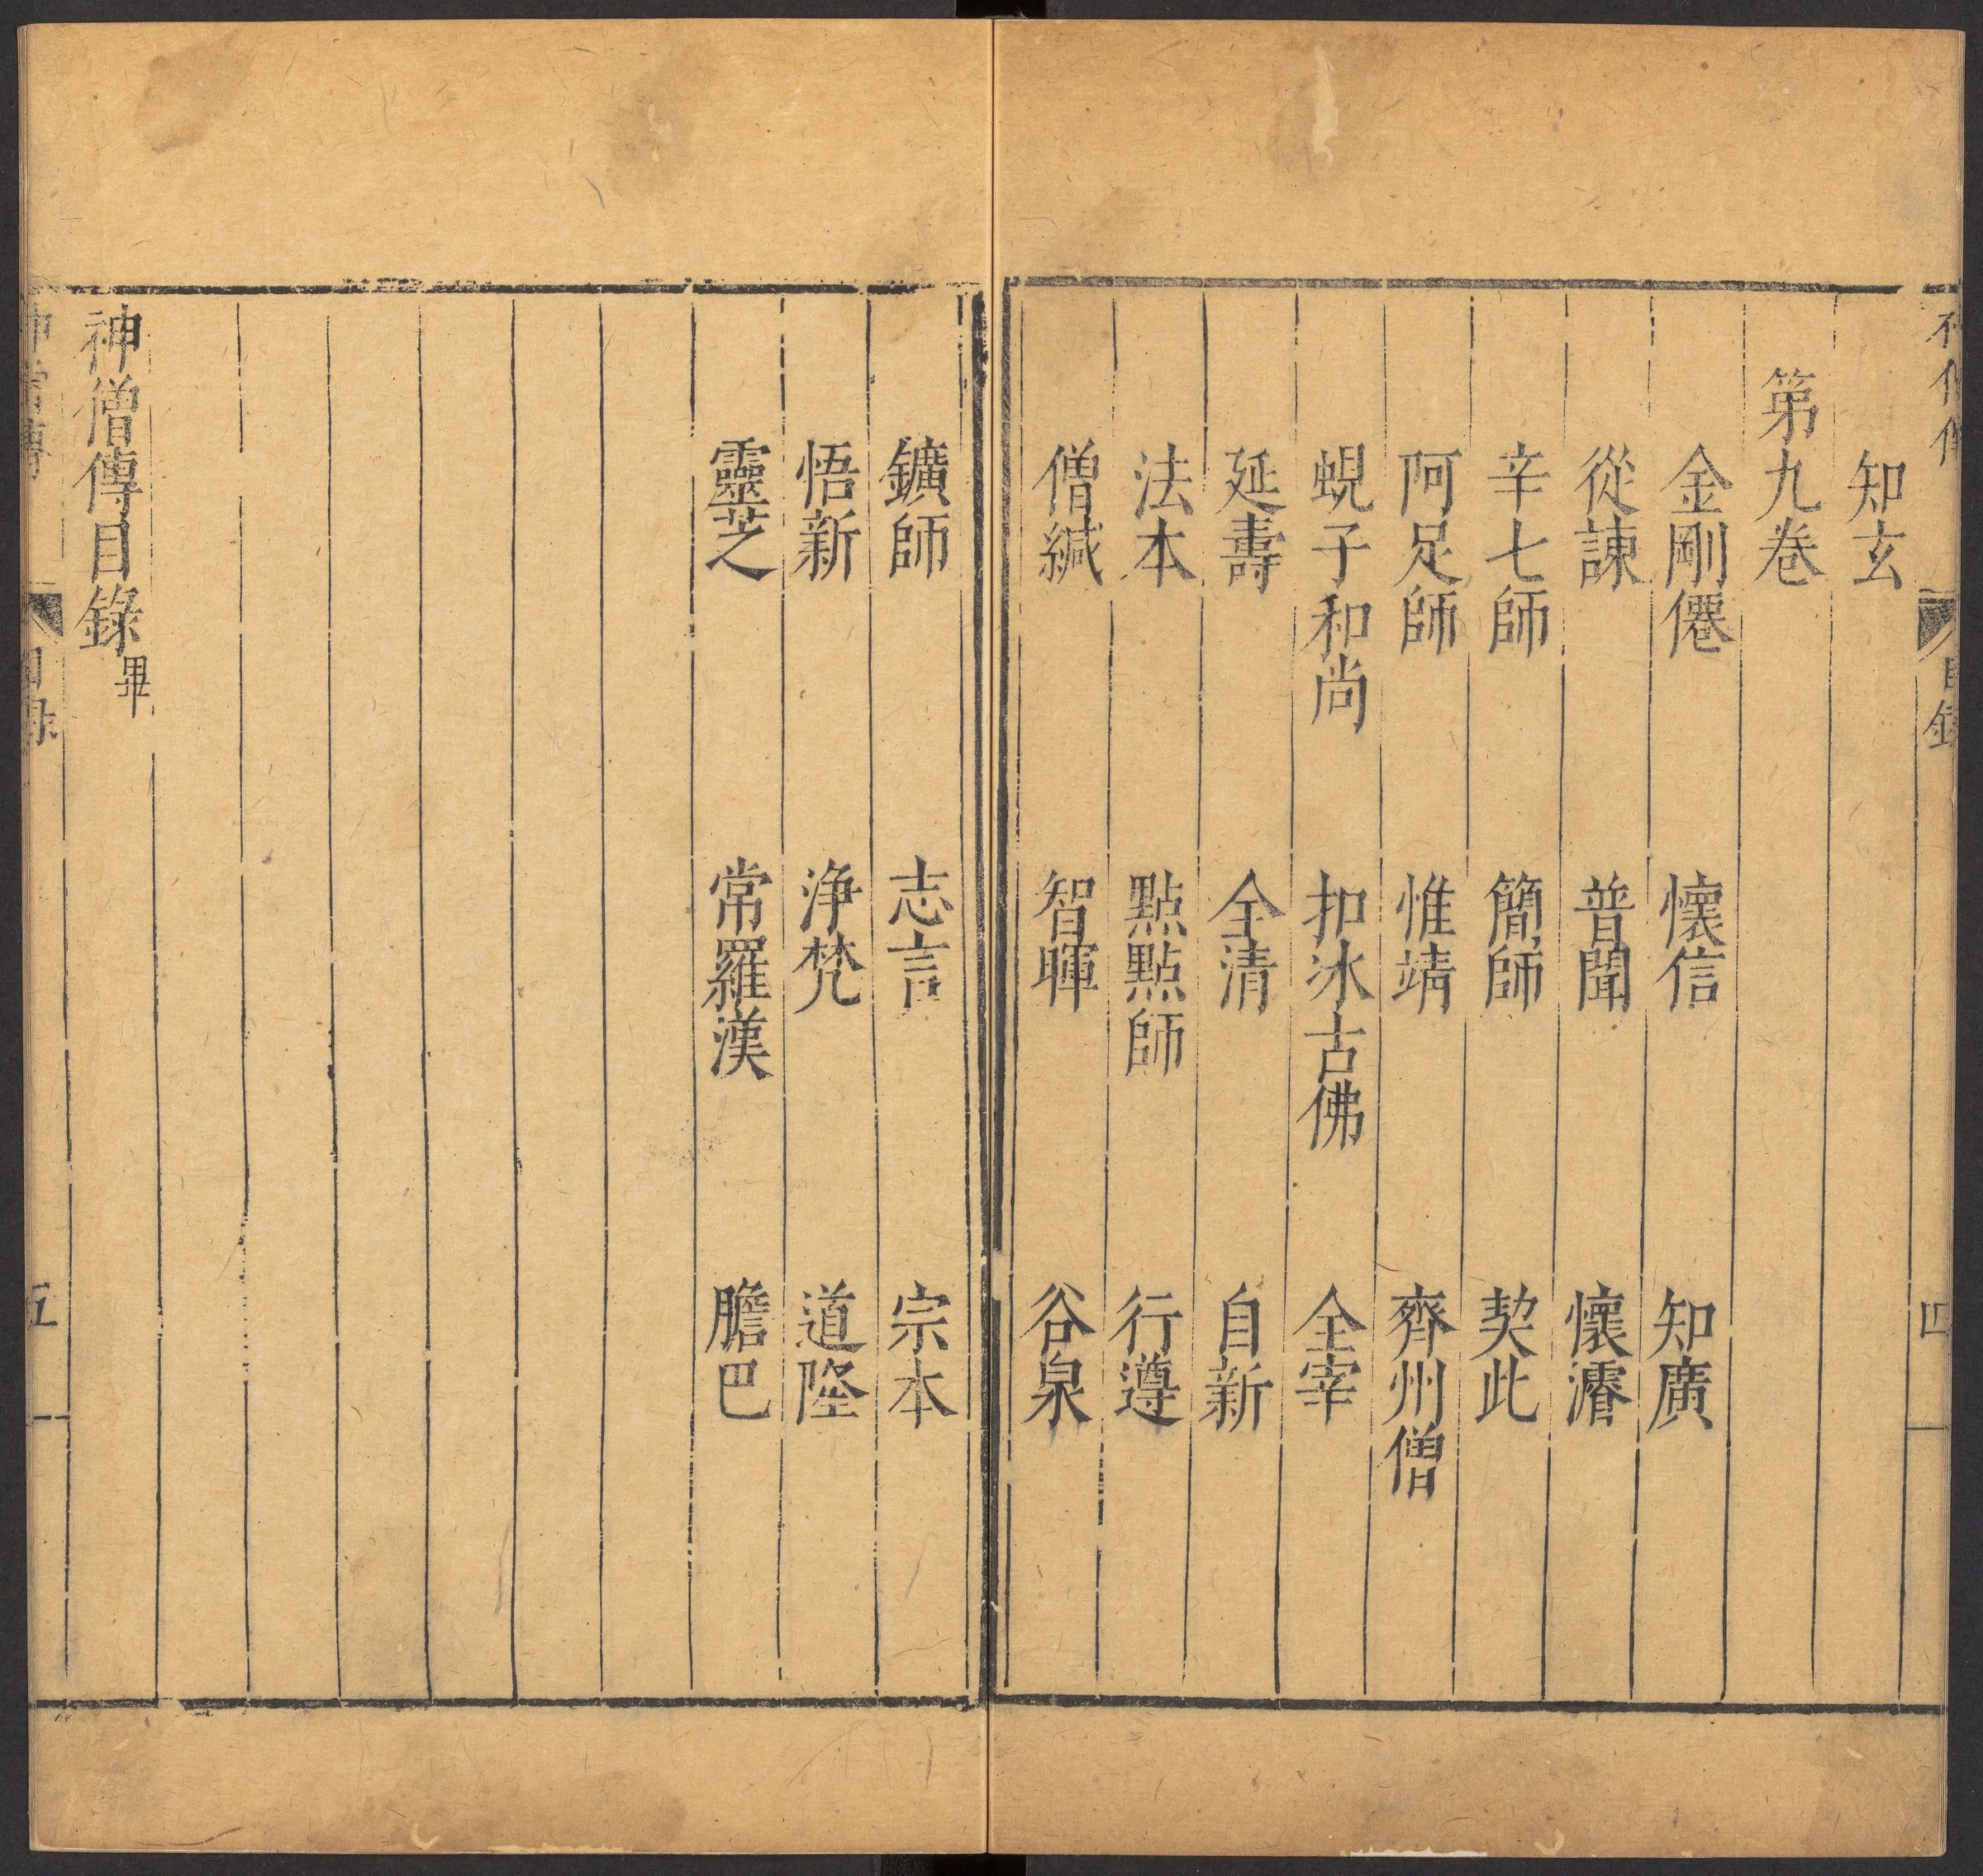 知玄
第九卷
金剛僊 懷信 知廣
從諫 普聞 懷濬
辛七師 簡師 契此
阿足師 惟靖 齊州僧
蜆子和尚 扣冰古佛 全宰
延壽 全清 自新
法本 點點師 行遵
僧緘 智暉 谷泉
鑛師 志言 宗本
悟新 淨梵 道隆
靈芝 常羅漢 膽巴
神僧傳目錄畢
神僧傳 目錄 五